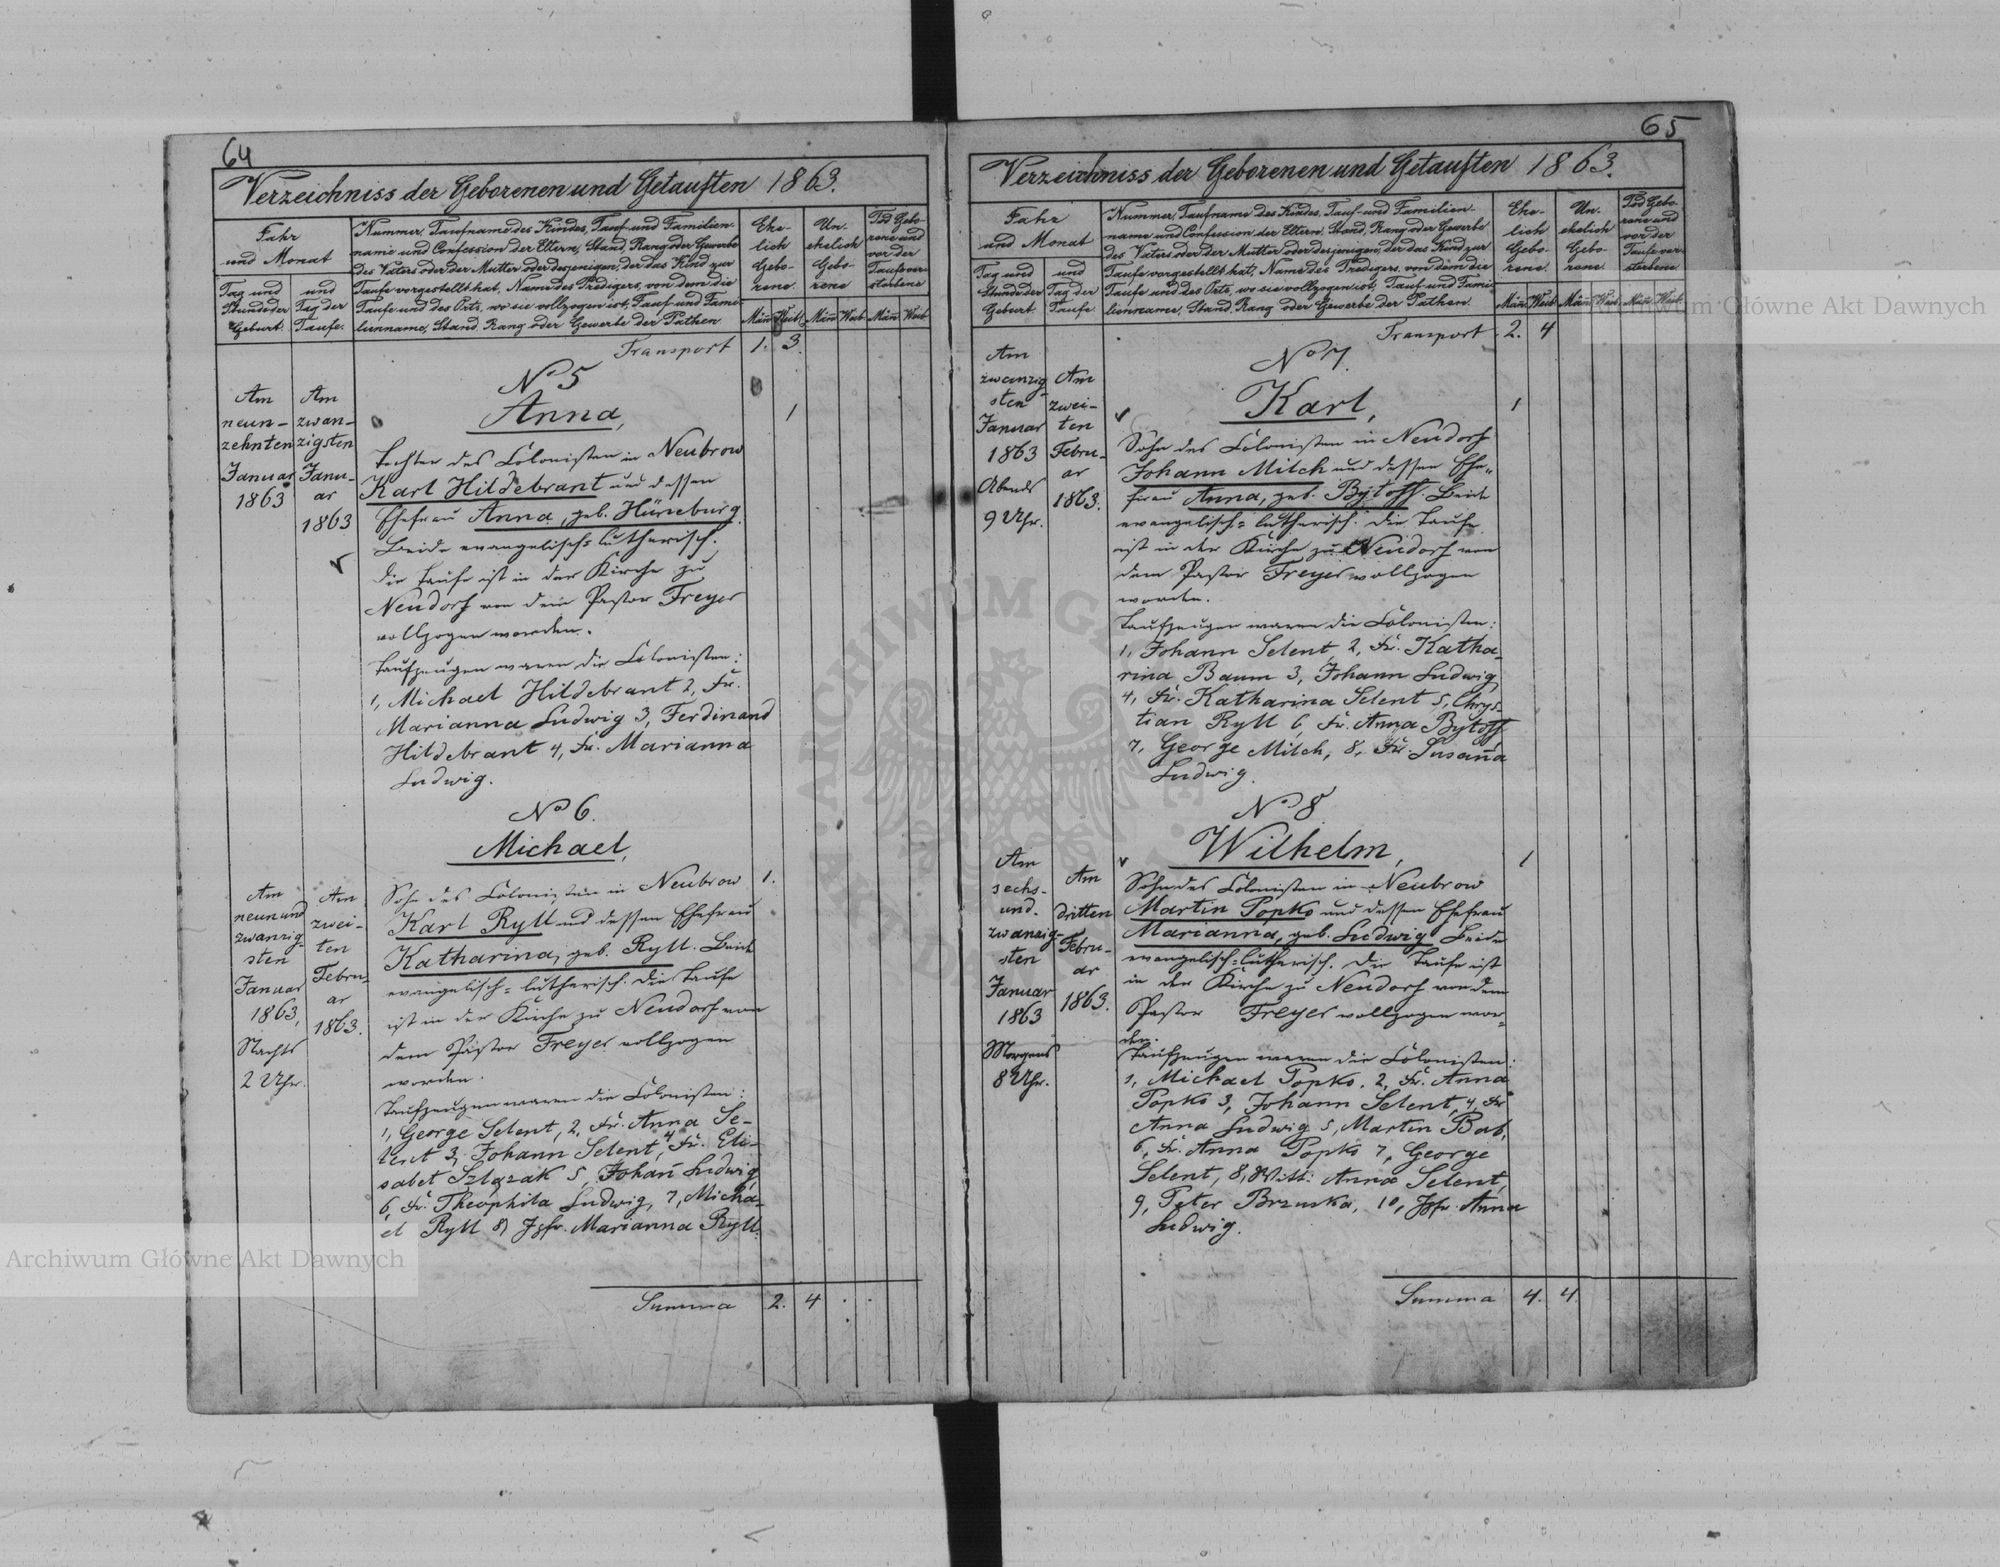 64
Verzeichniss der Geborenen und Getauften 1863.
Jahr und Monat
Tag und Stunde der Geburt.
und Tag der Taufe.
Nummer, Taufname des Kindes, Tauf- und Familien-
name und Confession der Eltern, Stand, Rang oder Gewerbe
des Vaters oder der Mutter oder desjenigen, der das Kind zur
Taufe vorgestellt hat, Name des Predigers, von dem die
Taufe und des Orts, wo sie vollzogen ist, Tauf- und Fami-
lienname, Stand, Rang oder Gewerbe der Pathen.
Ehe-
lich
Gebo-
rene.
Un-
ehelich
Gebo-
rene
Tod Gebo-
rene und
vor der
Taufe ver-
storbene
Män Weib. Män Weib. Män Weib.
Transport 1. 3.
No 5
Am
neun-
zehnten
Januar
1863
Am
zwan-
zigsten
Janu-
ar
1863
Anna, 1
Tochter des Colonisten in Neubrow
Karl Hildebrant und dessen
Ehefrau Anna, geb. Hüneburg.
Beide evangelisch-lutherisch.
Die Taufe ist in der Kirche zu
Neudorf von dem Pastor Freyer
vollzogen worden.
Taufzeugen waren die Colonisten:
1, Michael Hildebrant 2, Fr.
Marianna Ludwig 3, Ferdinand
Hildebrant 4, Fr. Marianna
Ludwig.
No 6.
Michael,
Am
neunund
zwanzig-
sten
Januar
1863,
Nachts
2 Uhr.
Am
zwei-
ten
Febru-
ar
1863.
Sohn des Colonisten in Neubrow 1.
Karl Ryll und dessen Ehefrau
Katharina, geb. Ryll. Beide
evangelisch-lutherisch. Die Taufe
ist in der Kirche zu Neudorf von
dem Pastor Freyer vollzogen
worden.
Taufzeugen waren die Colonisten:
1, George Selent, 2, Fr. Anna Se-
lent 3, Johann Selent, 4 Fr. Eli-
sabet Szlązak 5, Johañ Ludwig,
6, Fr. Theophila Ludwig, 7, Micha-
el Ryll 8, Jgfr. Marianna Ryll.
Summa 2. 4
65
Verzeichniss der Geborenen und Getauften 1863.
Jahr
und Monat
Tag und
Stunde der
Geburt
und
Tag der
Taufe
Nummer, Taufname des Kindes, Tauf- und Familien-
name und Confession der Eltern, Stand, Rang oder Gewerbe
des Vaters oder der Mutter oder desjenigen, der das Kind zur
Taufe vorgestellt hat, Name des Predigers, von dem die
Taufe und des Orts, wo sie vollzogen ist, Tauf- und Fami-
lienname, Stand, Rang oder Gewerbe der Pathen.
Ehe-
lich
Gebo-
rene.
Un-
ehelich
Gebo-
rene.
Tod Gebo-
rene und
vor der
Taufe ver-
storbene
Män Weib. Män Weib. Män Weib.
Transport 2. 4
No 7.
Am
zwanzig-
sten
Januar
1863
Abends
9 Uhr.
Am
zwei-
ten
Febru-
ar
1863.
Karl, 1
Sohn des Colonisten in Neudorf
Johann Milch und dessen Ehe-
frau Anna, geb. Bytoff. Beide
evangelisch-lutherisch. Die Taufe
ist in der Kirche zu Neudorf von
dem Pastor Freyer vollzogen
worden.
Taufzeugen waren die Colonisten:
1, Johann Selent, 2, Fr. Katha-
rina Baum 3, Johann Ludwig,
4, Fr. Katharina Selent 5, Chrys-
tian Ryll 6, Fr. Anna Bytoff
7, George Milch, 8, Fr. Susaña
Ludwig.
No 8
Wilhelm, 1
Am
sechs-
und-
zwanzig-
sten
Januar
1863
Morgens
8 Uhr.
Am
dritten
Febru-
ar
1863.
Sohn des Colonisten in Neubrow
Martin Popko und dessen Ehefrau
Marianna, geb. Ludwig. Beide
evangelisch-lutherisch. Die Taufe ist
in der Kirche zu Neudorf von dem
Pastor Freyer vollzogen wor-
den.
Taufzeugen waren die Colonisten:
1, Michael Popko. 2, Fr. Anna
Popko 3, Johann Selent, 4, Fr
Anna Ludwig 5, Martin Bab,
6, Fr. Anna Popko 7, George
Selent, 8, Witt: Anna Selent,
9, Peter Brzuska, 10, Jgfr. Anna
Ludwig.
Summa 4. 4.
Archiwum Główne Akt Dawnych
Archiwum Główne Akt Dawnych